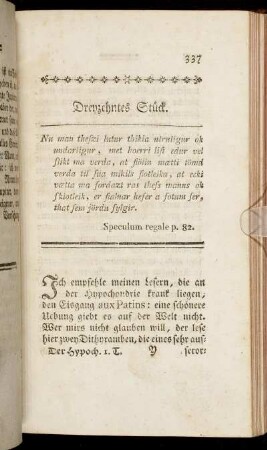 337
Dreyzehntes Stück.
Nu man thessi lutur thikia utrulligur ok
undarligur, met huerri list edur vel
slikt ma verda, at sidin mætti tömd
verda til sua mikils fliotleiks, at ecki
vætta ma fordazt ras thess manns ok
skiotleik, er fialnar hefer a fotum ser,
that sem jördu fylgir.
Speculum regale p. 82.
Ich empfehle meinen Lesern, die an
der Hypochondrie krank liegen,
den Eisgang aux Patins: eine schönere
Uebung giebt es auf der Welt nicht.
Wer mirs nicht glauben will, der lese
hier zwey Dithyramben, die eines sehr aus-
Der Hypoch. 1. T. Y seror-